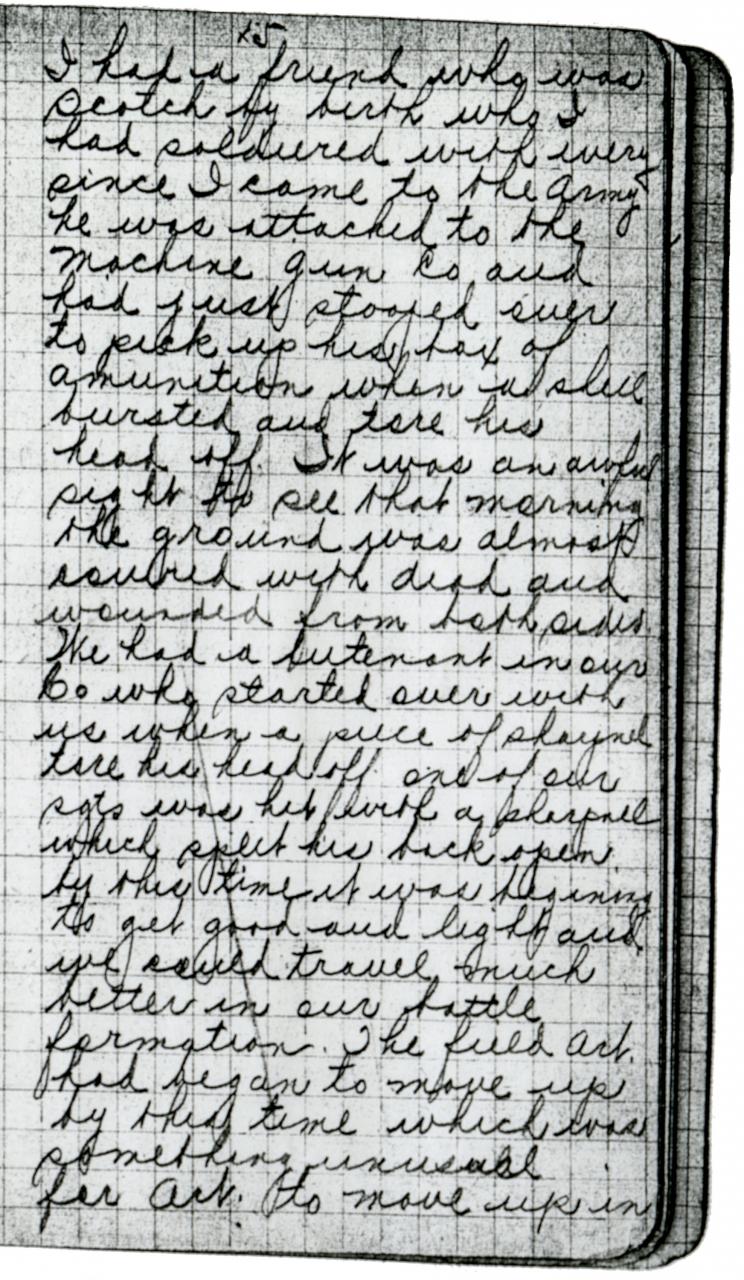 15
I had a friend who was
Scotch by birth who I
had soldiered with every
since I came to the Army
he was attached to the
machine gun Co and
had just stooped over
to pick up his box of
amunition when a shell
bursted and tore his
head off. It was an awful
sight to see that morning
the ground was almost
covered with dead and
wounded from both sides.
We had a lutenant in our
Co who started over with
us when a piece of shrapnel
tore his head off one of our
sgts was hit with a sharpnel
which split his back open
by this time it was begining
to get good and light and
we could travel much
better in our battle
formation. The field Art.
had began to move up
by this time which was
something unusual
for Art. to move up in